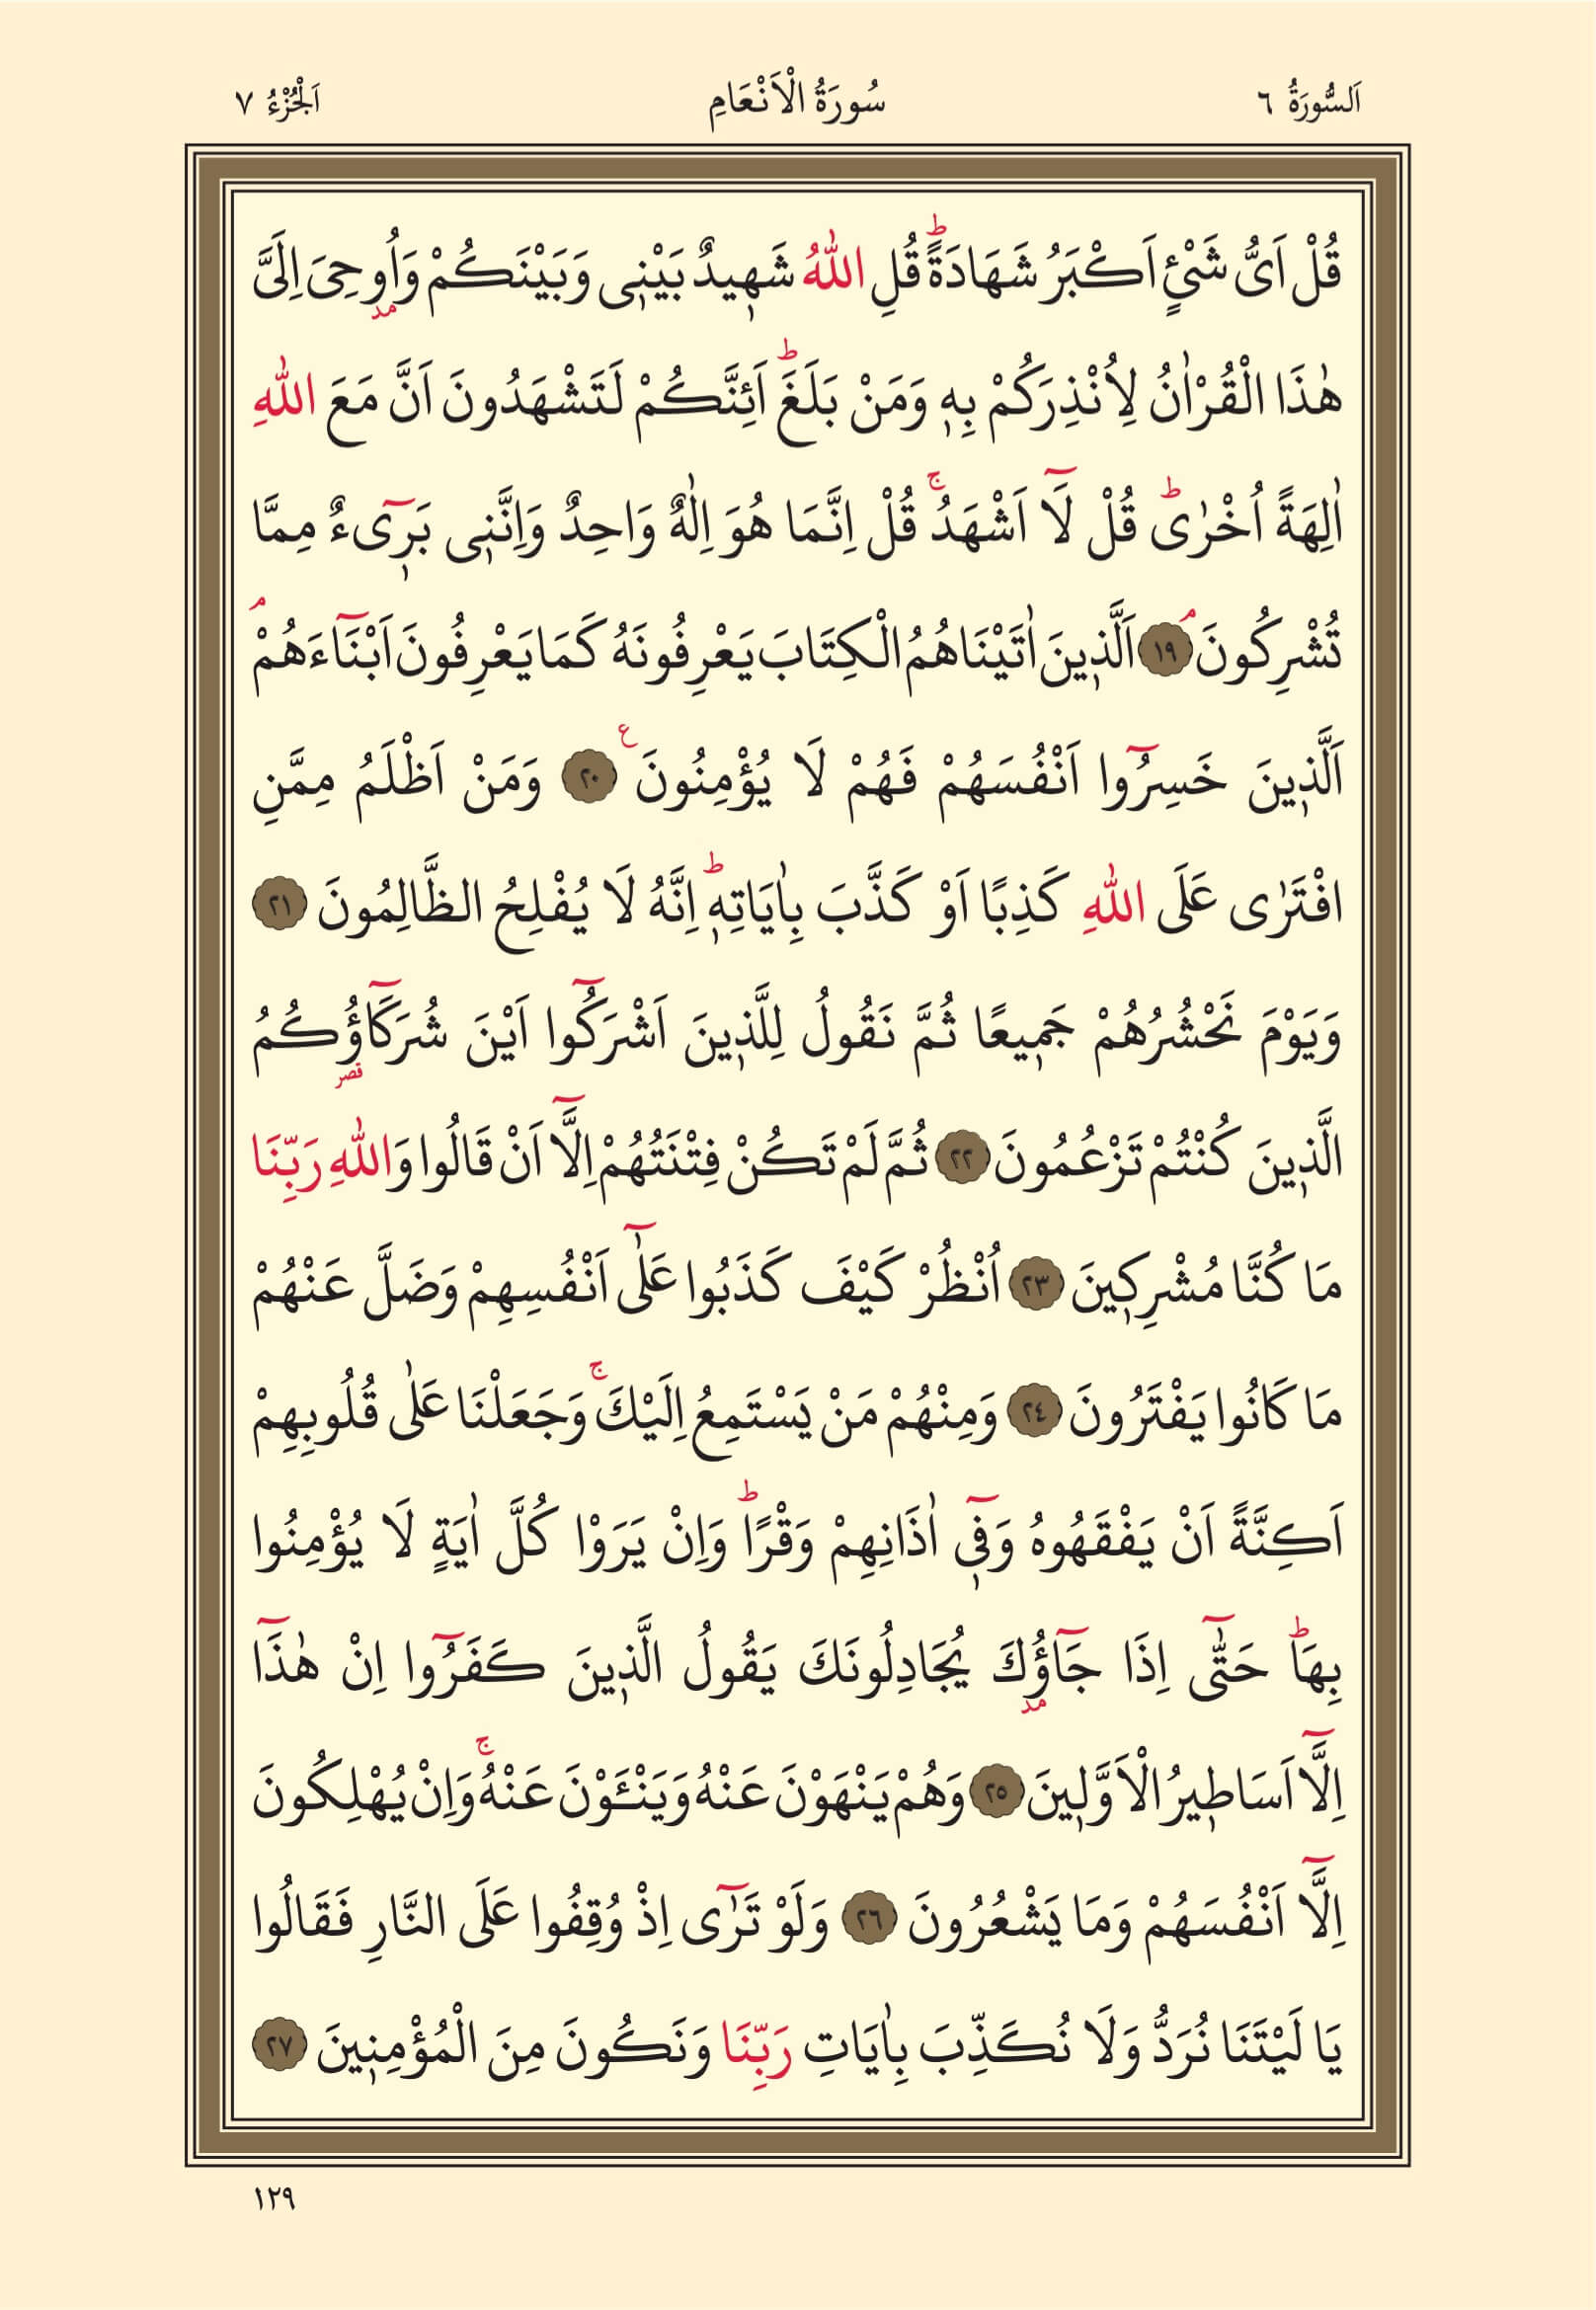 اَلسُّورَةُ ٦
سُورَةُ الْاَنْعَامِ
اَلْجُزْءُ ٧
قُلْ اَىُّ شَىْءٍ اَكْبَرُ شَهَادَةًۜ قُلِ اللّٰهُ شَهٖيدٌ بَيْنٖى وَبَيْنَكُمْ وَاُوحِىَ اِلَىَّ
هٰذَا الْقُرْاٰنُ لِاُنْذِرَكُمْ بِهٖ وَمَنْ بَلَغَۜ اَئِنَّكُمْ لَتَشْهَدُونَ اَنَّ مَعَ اللّٰهِ
اٰلِهَةً اُخْرٰىۜ قُلْ لَٓا اَشْهَدُۚ قُلْ اِنَّمَا هُوَ اِلٰهٌ وَاحِدٌ وَاِنَّنٖى بَرٖٓىءٌ مِمَّا
تُشْرِكُونَۢ ١٩ اَلَّذٖينَ اٰتَيْنَاهُمُ الْكِتَابَ يَعْرِفُونَهُ كَمَا يَعْرِفُونَ اَبْنَٓاءَهُمْۢ
اَلَّذٖينَ خَسِرُٓوا اَنْفُسَهُمْ فَهُمْ لَا يُؤْمِنُونَ ع ٢٠ وَمَنْ اَظْلَمُ مِمَّنِ
افْتَرٰى عَلَى اللّٰهِ كَذِبًا اَوْ كَذَّبَ بِاٰيَاتِهٖۜ اِنَّهُ لَا يُفْلِحُ الظَّالِمُونَ ٢١
وَيَوْمَ نَحْشُرُهُمْ جَمٖيعًا ثُمَّ نَقُولُ لِلَّذٖينَ اَشْرَكُٓوا اَيْنَ شُرَكَٓاؤُ۬كُمُ
الَّذٖينَ كُنْتُمْ تَزْعُمُونَ ٢٢ ثُمَّ لَمْ تَكُنْ فِتْنَتُهُمْ اِلَّٓا اَنْ قَالُوا وَاللّٰهِ رَبِّنَا
مَا كُنَّا مُشْرِكٖينَ ٢٣ اُنْظُرْ كَيْفَ كَذَبُوا عَلٰٓى اَنْفُسِهِمْ وَضَلَّ عَنْهُمْ
مَا كَانُوا يَفْتَرُونَ ٢٤ وَمِنْهُمْ مَنْ يَسْتَمِعُ اِلَيْكَۚ وَجَعَلْنَا عَلٰى قُلُوبِهِمْ
اَكِنَّةً اَنْ يَفْقَهُوهُ وَفٖٓى اٰذَانِهِمْ وَقْرًاۜ وَاِنْ يَرَوْا كُلَّ اٰيَةٍ لَا يُؤْمِنُوا
بِهَاۜ حَتّٰٓى اِذَا جَٓاؤُ۫كَ يُجَادِلُونَكَ يَقُولُ الَّذٖينَ كَفَرُٓوا اِنْ هٰذَٓا
اِلَّٓا اَسَاطٖيرُ الْاَوَّلٖينَ ٢٥ وَهُمْ يَنْهَوْنَ عَنْهُ وَيَنْـَٔوْنَ عَنْهُۚ وَاِنْ يُهْلِكُونَ
اِلَّٓا اَنْفُسَهُمْ وَمَا يَشْعُرُونَ ٢٦ وَلَوْ تَرٰٓى اِذْ وُقِفُوا عَلَى النَّارِ فَقَالُوا
يَا لَيْتَنَا نُرَدُّ وَلَا نُكَذِّبَ بِاٰيَاتِ رَبِّنَا وَنَكُونَ مِنَ الْمُؤْمِنٖينَ ٢٧
١٢٩